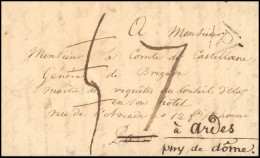 A Monsieur
Monsieur le Comte de Castellane
Général de Brigade
maître de requêtes au Conseil d'Etat
en son hôtel
rue de
à Ardes
puy de dôme.
57